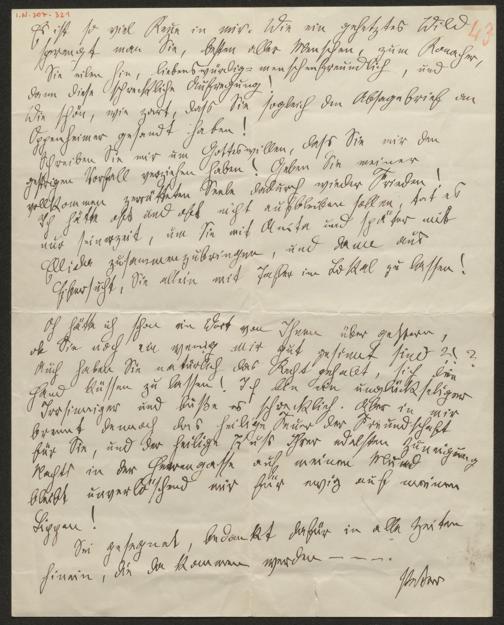 I.N. 207.321
43
Es ist so viel Reue in mir. Wie ein gehetztes Wild
sprengt man Sie, besten aller Menschen, zum Ronacher,
Sie eilen hin, liebenswürdig-menschenfreundlich, und
dann diese schreckliche Aufregung!
Wie schön, wie zart, dass Sie sogleich den Absagebrief an
Oppenheimer gesandt haben!
Schreiben Sie mir um Gotteswillen, dass Sie mir den
gestrigen Vorfall verziehen haben! Geben Sie meiner
vollkommen zerrütteten Seele dadurch wieder Frieden!
Ich hätte oft und oft nicht ausbleiben sollen, tat es
nur seinerzeit, um Sie mit Anita und später mit
zusammenzubringen, und dann aus
Eifersucht, Sie allein mit im Lokal zu lassen!
Oh hätte ich schon ein Wort von Ihnen über gestern,
ob Sie noch ein wenig mir gut gesinnt sind ? ! ?
Auch haben Sie natürlich das Recht gehabt, sich die
Hand küssen zu lassen! Ich bin ein unglückseliger
Irrsinniger und büße es schrecklich. Aber in mir
brennt dennoch das heilige Feuer der Freundschaft
für Sie, und der heilige Kuss Ihrer edelsten Zuneigung
Nachts in der Herrengasse auf meinen Mund
bleibt unverlöschend mir für ewig auf meinen
Lippen!
Sei gesegnet, bedankt dafür in alle Zeiten
hinein, die da kommen werden — — —.
Peter